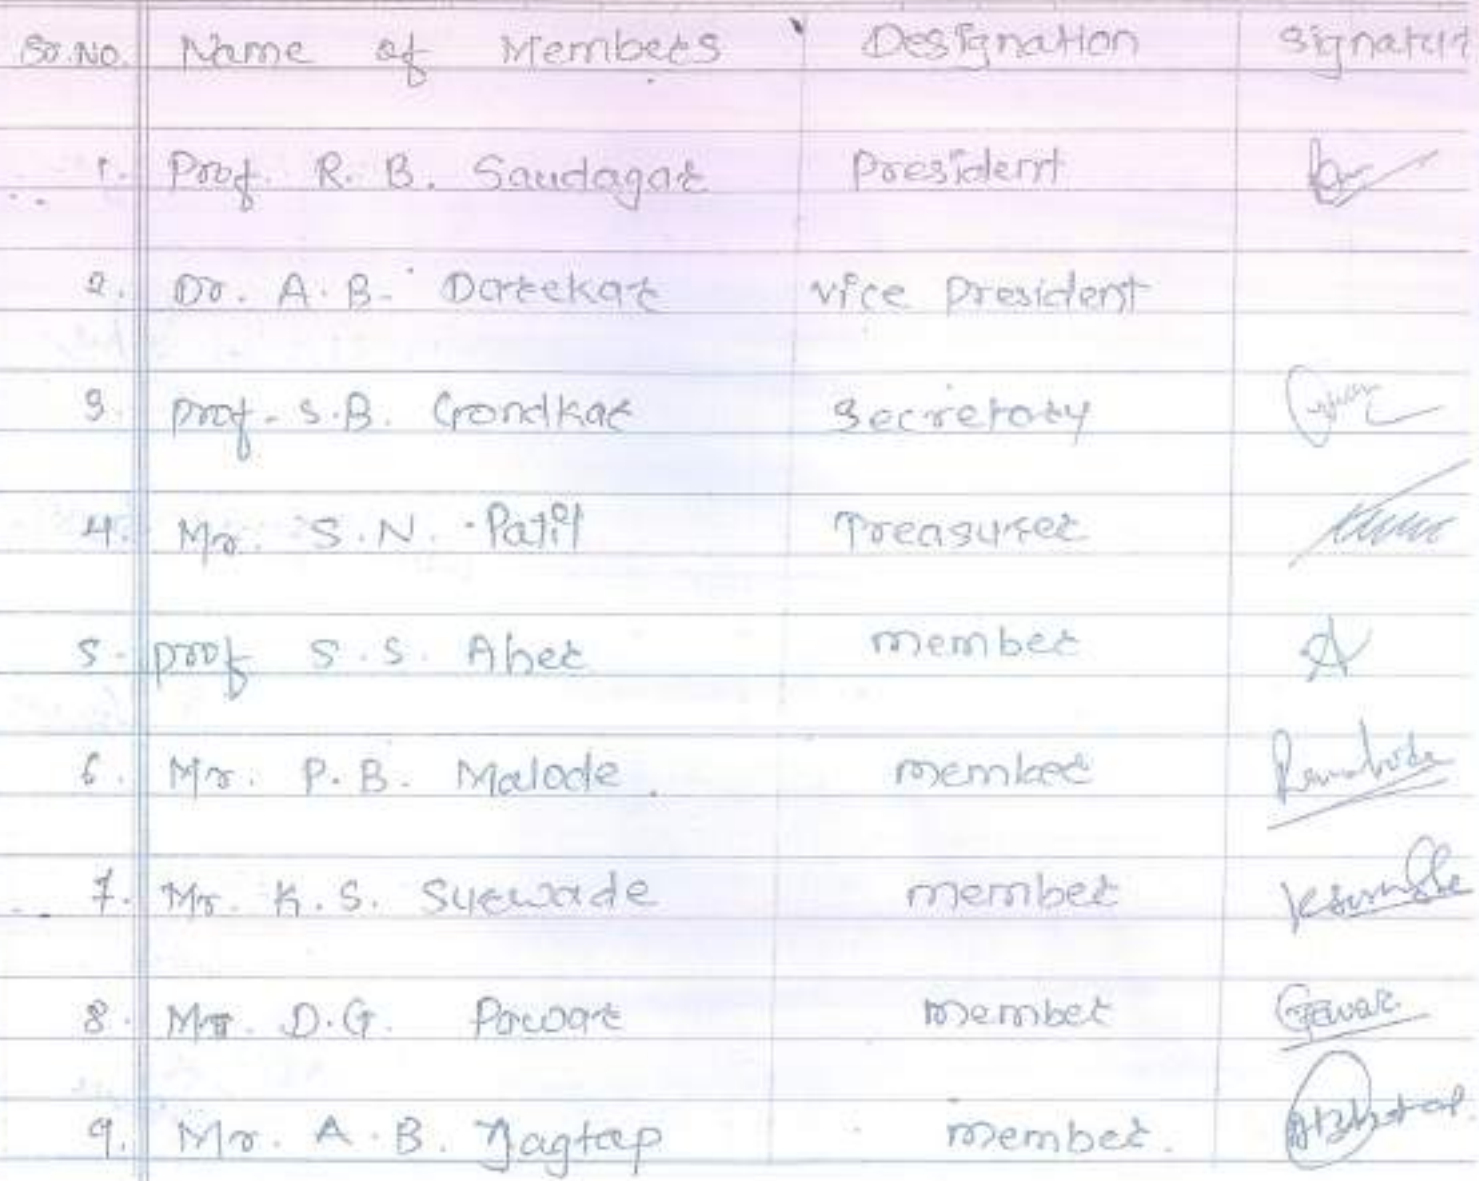 Sr.No. Name of Members Designation Signature
1. Prof. R. B. Saudagar President
2. Dr. A. B. Darekar vice President
3. Prof. S.B. Gondkar Secretary
4. Mr. S.N. Patil Treasurer
5. Prof S.S. Aher member
6. Mr. P.B. Malode member
7. Mr. K.S. Surwade member
8. Mr. D.G. Pawar member Gavar
9. Mr. A.B. Jagtap member.